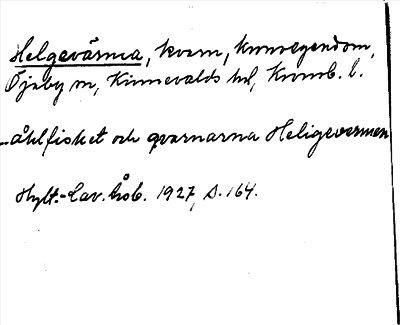 Helgevärma, kvarn, kronoegendom,
Öjaby sn, Kinnevalds hd, Kronob. l.
åhlfisket och qvarnarna Heligevermen
Hylt.-Cav. årsb. 1927, s. 164.